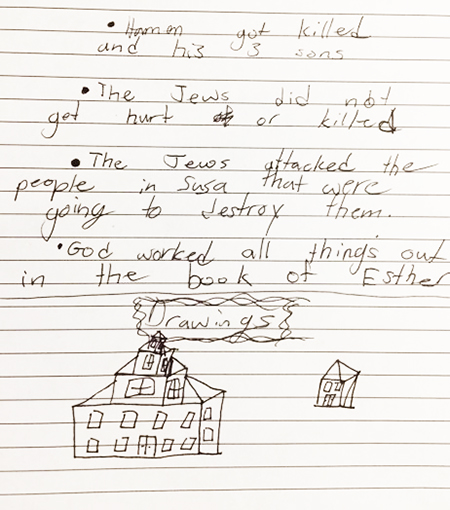 • Haman got killed
and his 3 sons
• The Jews did not
get hurt or killed
• The Jews attacked the
people in Susa that were
going to destroy them.
• God worked all things out
in the book of Esther
Drawings